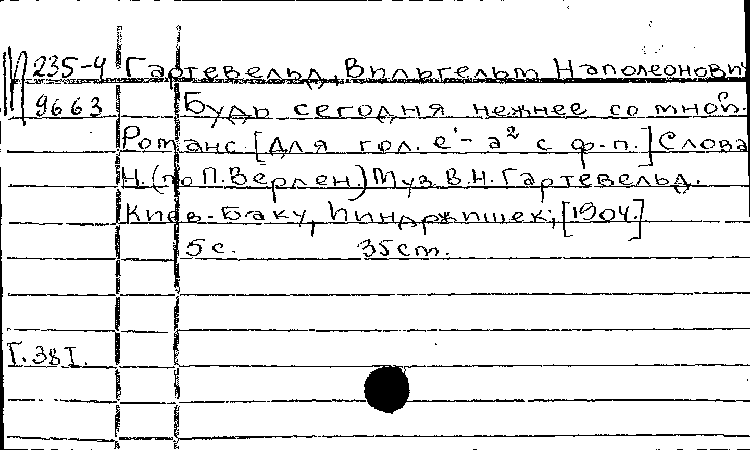 М 235-4 Гартевельд, Вильгельм Наполеонович
9663 Будь сегодня нежнее со мной.
Романс. [Для гол. e¹-a² с ф-п.] Слова
Н. (по П. Верлен.) Муз. В.Н. Гартевельд.
Киев-Баку, Индржишек, [1904.]
5с. 35см.
Г. 38 I.